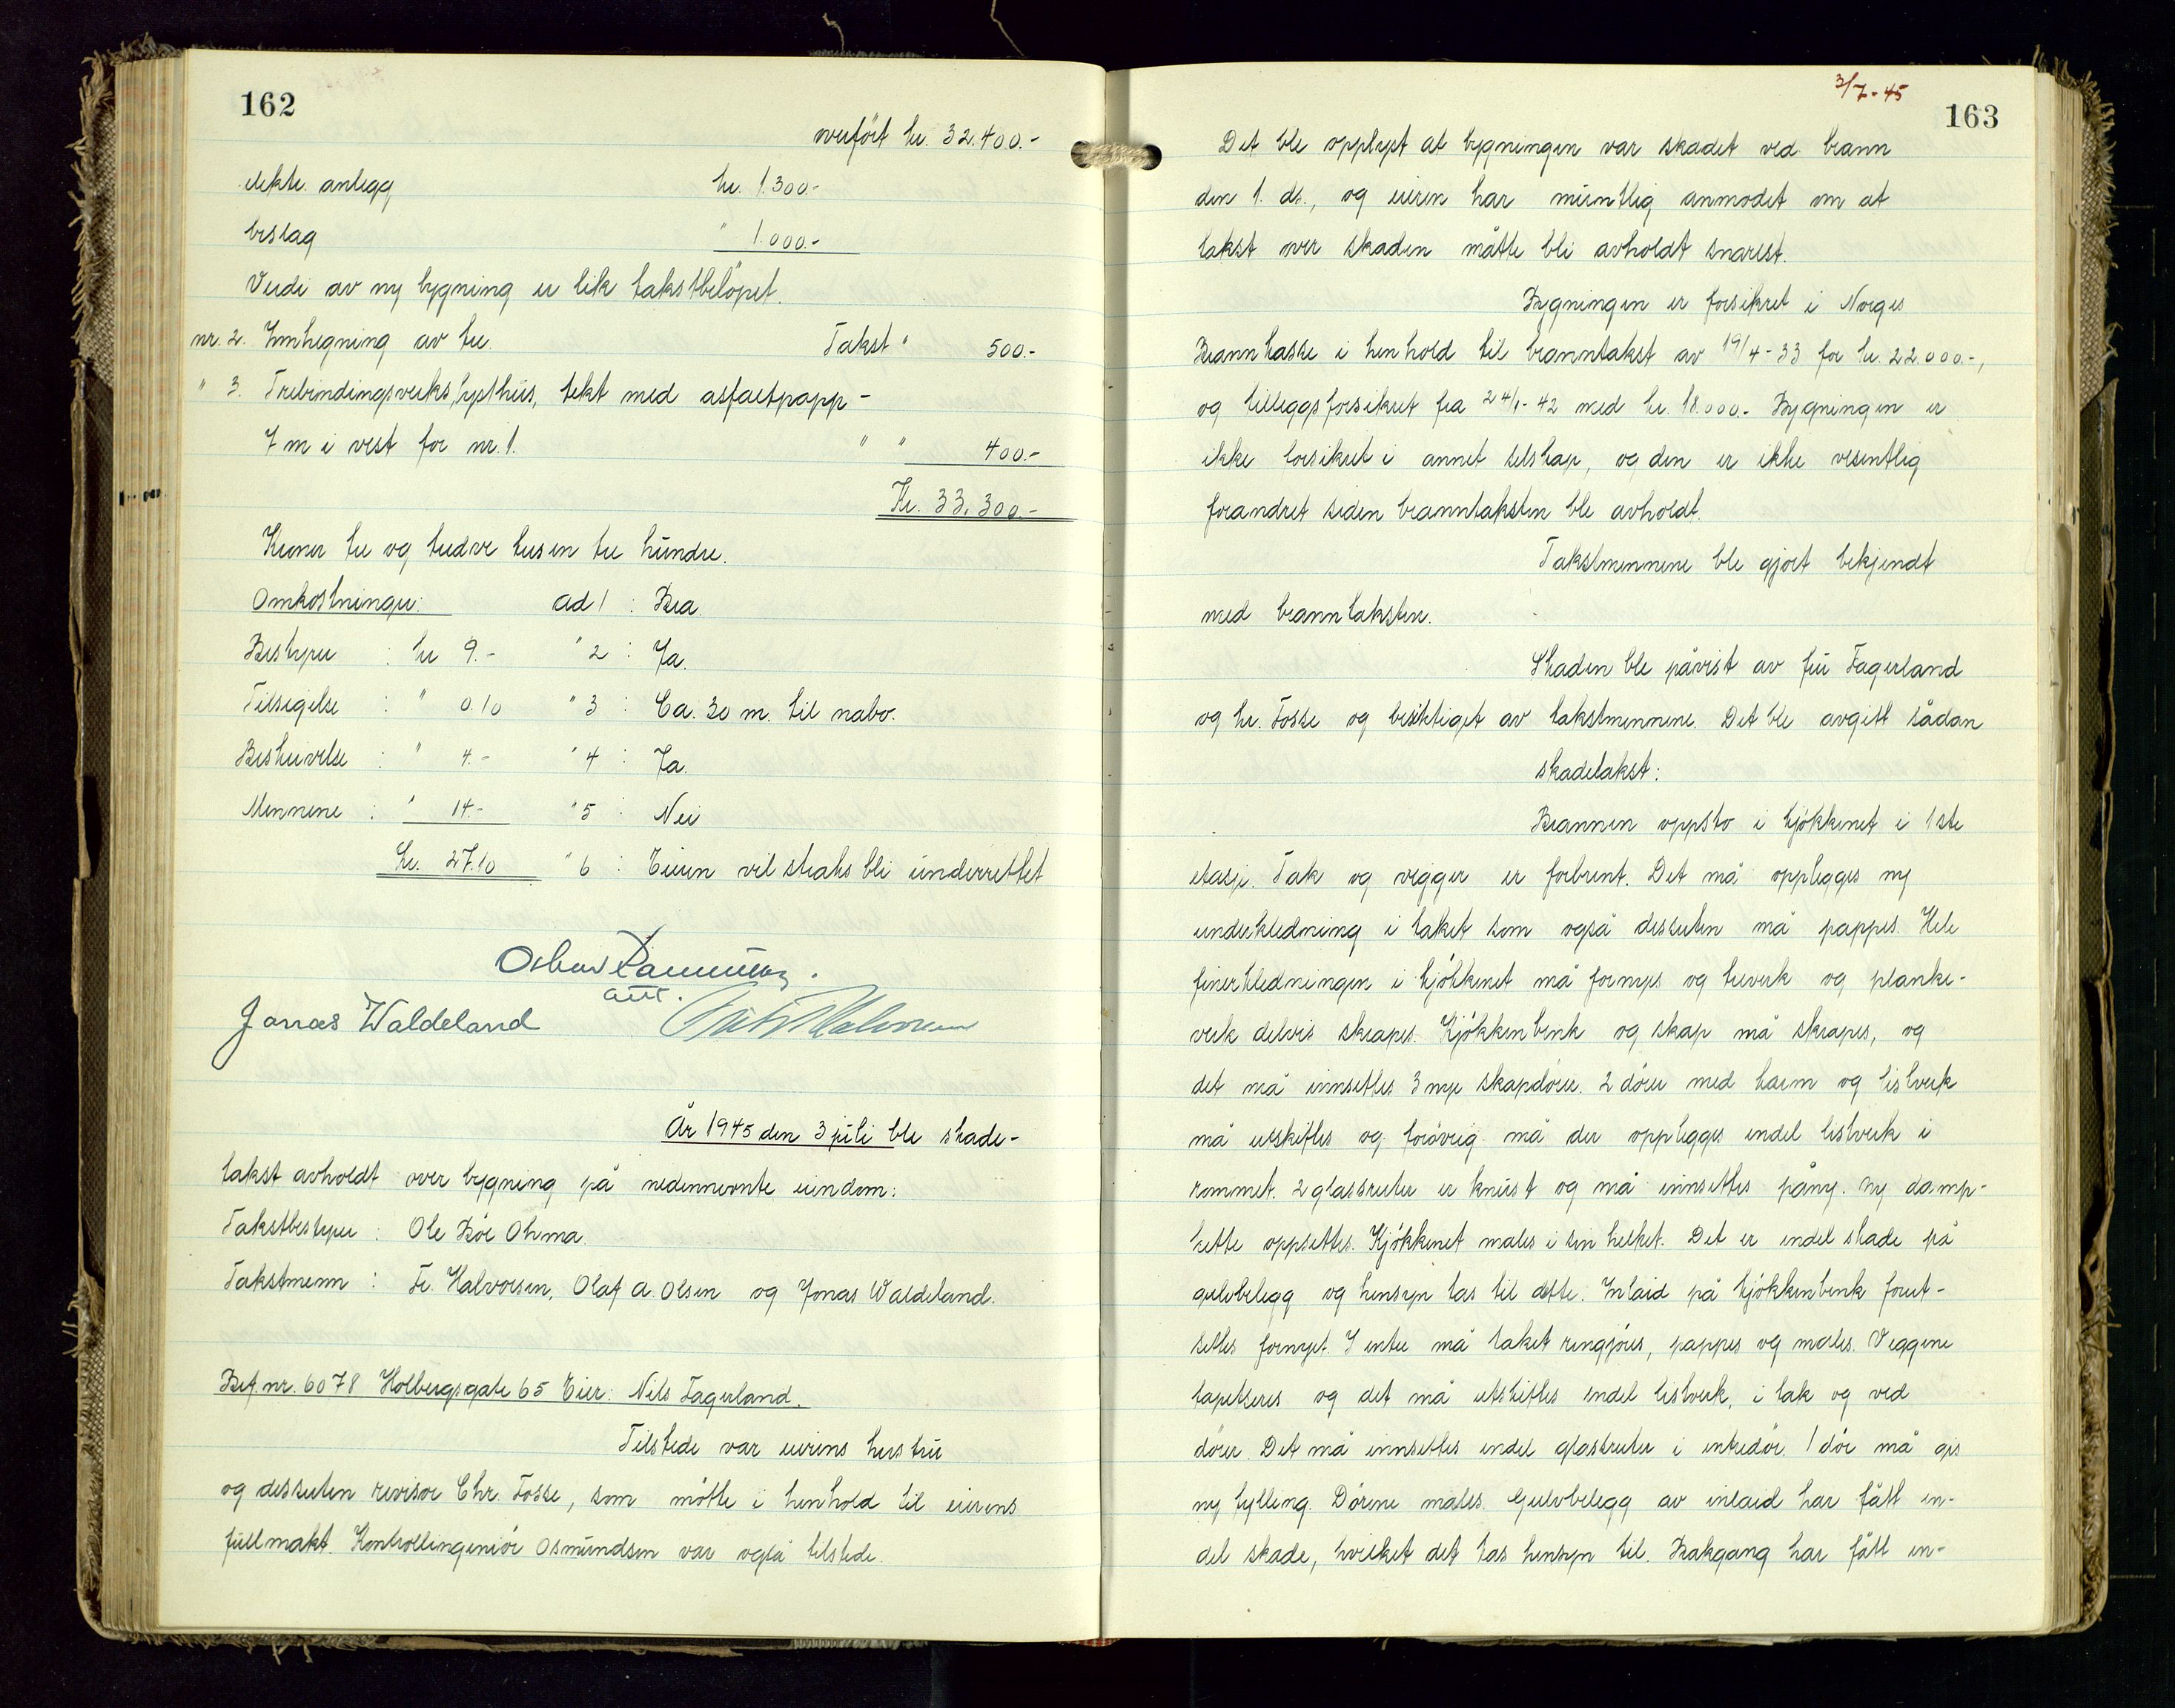 162
overført kr. 32.400.-
elektr. anlegg kr. 1.300.-
beslag " 1.000.-
Verdi av ny bygning er lik takstbeløpet.
nr. 2. Innhegning av tre. Takst " 500.-
" 3. Trebindingsverks lysthus, tekt med asfaltpapp -
7 m i vest for nr. 1. " " 400.-
Kr. 33.300.-
Kroner tre og tredve tusen tre hundre.
Omkostninger: ad 1 : Bra.
Bestyrer : kr 9.- " 2 : Ja.
Tilsigelse : " 0.10 " 3 : Ca. 30 m. til nabo.
Beskrivelse : " 4.- " 4 : Ja.
Mennene : " 14.- " 5 : Nei
Kr. 27.10 " 6 : Eieren vil straks bli underrettet
Jonas Waldeland
År 1945 den 3 juli ble skade-
takst avholdt over bygning på nedennevnte eiendom:
Takstbestyrer : Ole Bøe Ohma.
Takstmenn : Fr. Halvorsen, Olaf A. Olsen og Jonas Waldeland.
Br.f. nr. 6078 Holbergsgate 65 Eier: Nils Fagerland.
Tilstede var eierens hustru
og dessuten revisor Chr. Fosse, som møtte i henhold til eierens
fullmakt. Kontrollingeniør Osmundsen var også tilstede.
3/7-45
163
Det ble opplyst at bygningen var skadet ved brann
den 1. ds., og eieren har muntlig anmodet om at
takst over skaden måtte bli avholdt snarest.
Bygningen er forsikret i Norges
Brannkasse i henhold til branntakst av 19/4-33 for kr. 22.000.-,
og tilleggsforsikret fra 24/1-42 med kr. 18.000.- Bygningen er
ikke forsikret i annet selskap, og den er ikke vesentlig
forandret siden branntaksten ble avholdt.
Takstmennene ble gjort bekjendt
med branntaksten.
Skaden ble påvist av fru Fagerland
og hr. Fosse og besiktiget av takstmennene. Det ble avgitt sådan
skadetakst:
Brannen oppsto i kjøkkenet i 1ste
etasje. Tak og vegger er forbrent. Det må opplegges ny
underkledning i taket som også dessuten må pappes. Hele
finerkledningen i kjøkkenet må fornyes og treverk og planke-
verk delvis skrapes. Kjøkkenbenk og skap må skrapes, og
det må innsettes 3 nye skapdører. 2 dører med karm og listverk
må utskiftes og forøvrig må der opplegges endel listverk i
rommet. 2 glassruter er knust og må innsettes påny. Ny damp-
hette oppsettes. Kjøkkenet males i sin helhet. Det er endel skade på
gulvbelegg og hensyn tas til dette. Inlaid på kjøkkenbenk forut-
settes fornyet. I entre må taket rengjøres, pappes og males. Veggene
tapetseres og det må utskiftes endel listverk, i tak og ved
dører. Det må innsettes endel glassruter i entredør. 1 dør må gis
ny fylling. Dørene males. Gulvbelegg av inlaid har fått en-
del skade, hvilket det tas hensyn til. Bakgang har fått en-